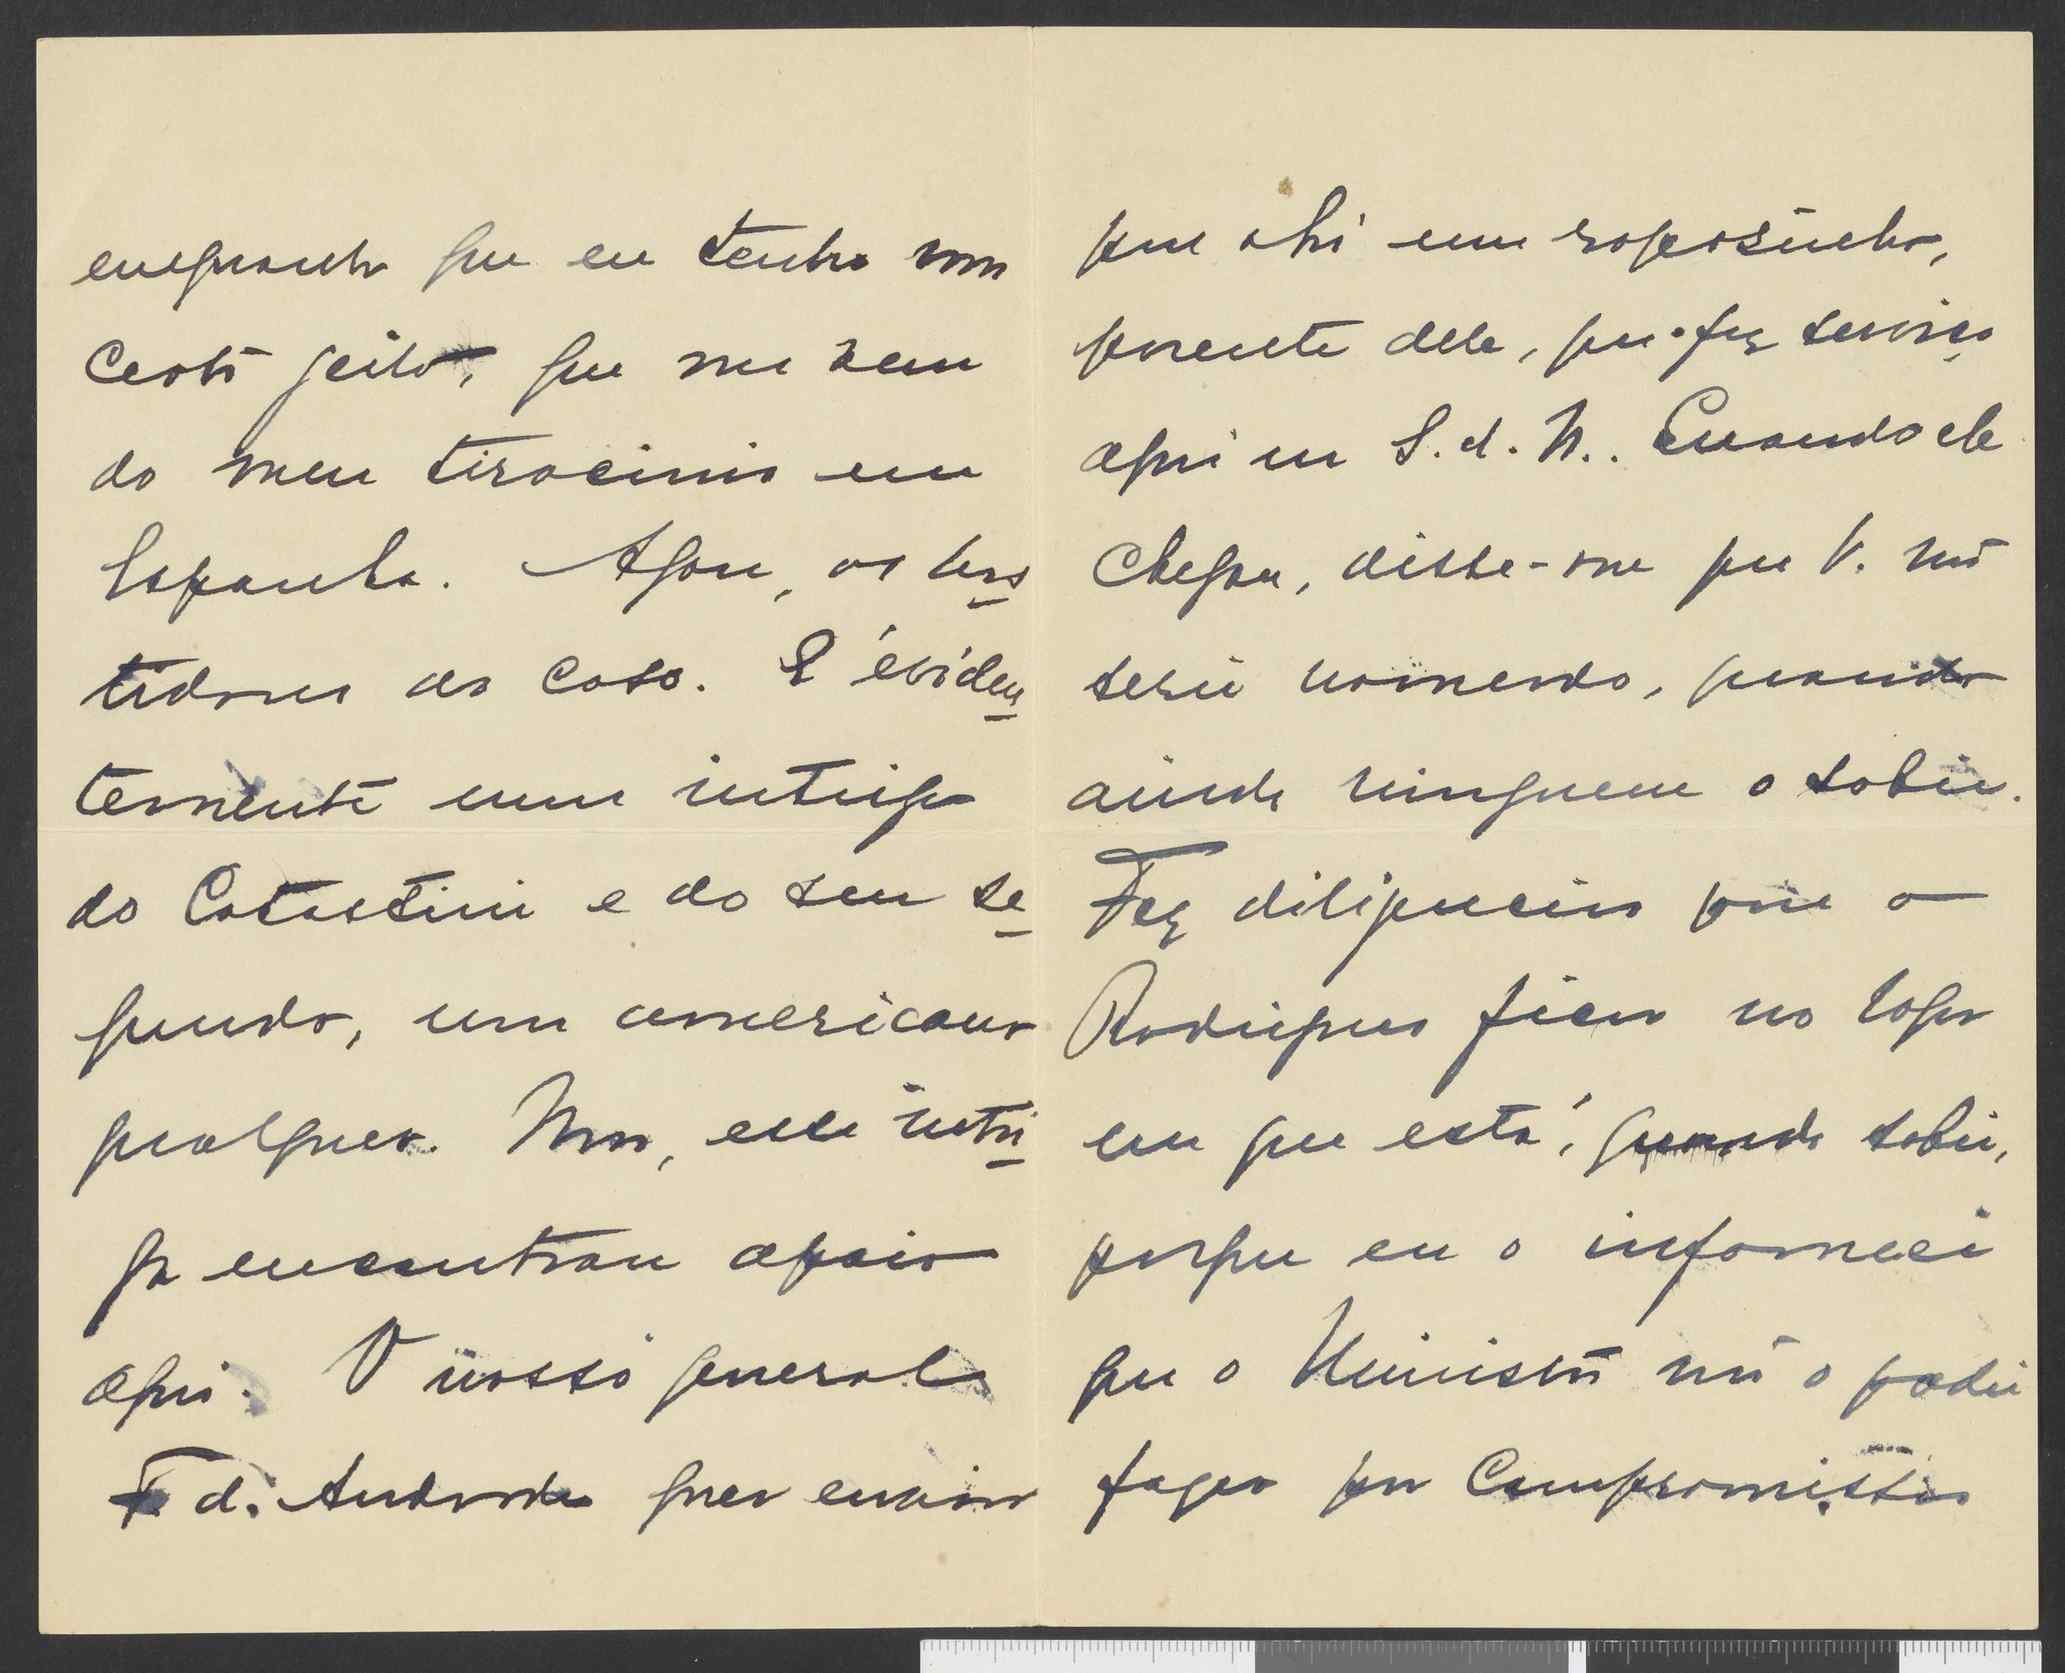 emquanto que eu tenho um
certo jeito, que me vem
do meu tirocinio em
Espanha. Agora, os bas
tidores do caso. E' eviden
temente uma intriga
do Catastini e do seu se
gundo, um americano
qualquer. Mas, essa intri
ga encontrou apoio
aqui. O nosso general
F. d. Andrade quer enviar
para ahi um rapazinho,
parente dele, que fez serviço
aqui na S. d. N.. Quando ele
chegou, disse-me que V. não
seria nomeado, quando
ainda ninguem o sabia.
Fez diligencias para o
Rodrigues ficar no logar
em que está, quando sabia,
porque eu o informei
que o Ministro não o podia
fazer por compromissos